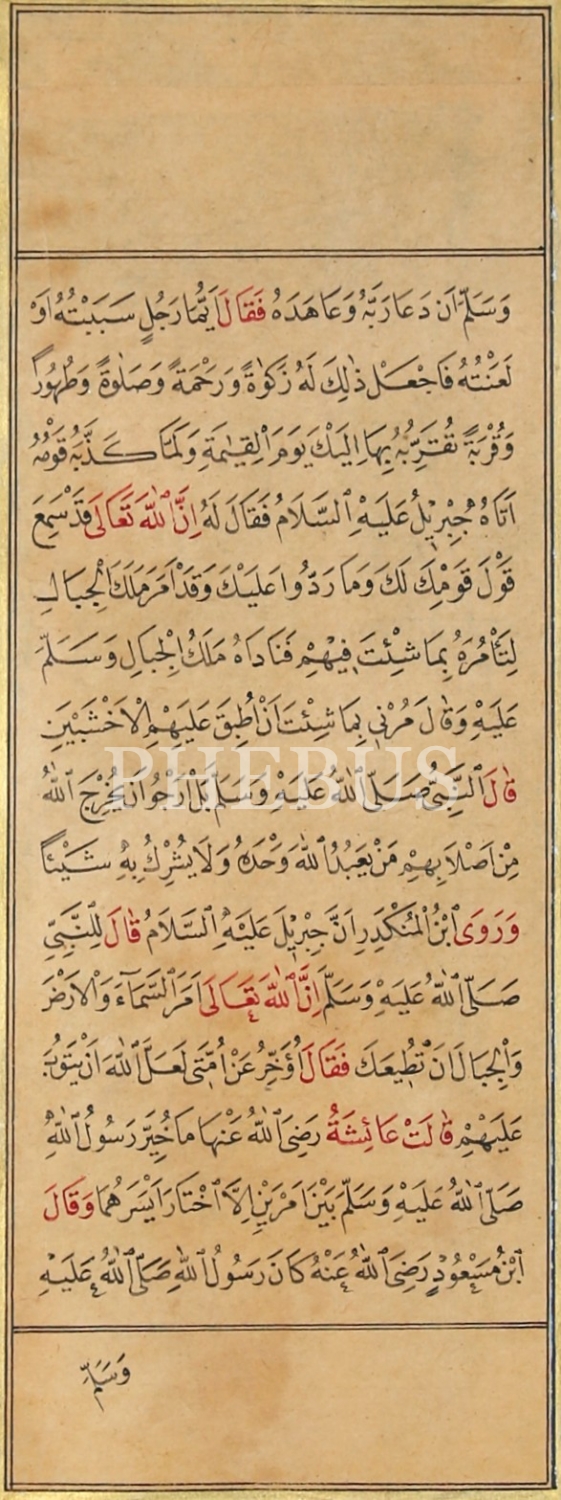 وَسَلَّمَ اَن دَعَا رَبَّهُ وَعَاهَدَهُ فَقَالَ اَيُّمَا رَجُلٍ سَبَبْتُهُ اَوْ
لَعَنْتُهُ فَاجْعَلْ ذٰلِكَ لَهُ زَكٰوةً وَرَحْمَةً وَصَلٰوةً وَطُهُورًا
وَقُرْبَةً تُقَرِّبُهُ بِهَا اِلَيْكَ يَوْمَ الْقِيٰمَةِ وَلَمَّا كَذَّبَهُ قَوْمُهُ
اَتَاهُ جِبْرِيلُ عَلَيْهِ السَّلَامُ فَقَالَ لَهُ اِنَّ اللّٰهَ تَعَالَى قَدْ سَمِعَ
قَوْلَ قَوْمِكَ لَكَ وَمَا رَدُّوا عَلَيْكَ وَقَدْ اَمَرَ مَلَكَ الْجِبَالِ
لِتَأْمُرَهُ بِمَا شِئْتَ فِيهِمْ فَنَادَاهُ مَلَكُ الْجِبَالِ وَسَلَّمَ
عَلَيْهِ وَقَالَ مُرْنِي بِمَا شِئْتَ اَنْ اُطْبِقَ عَلَيْهِمِ الْاَخْشَبَيْنِ
PHEBUS
قَالَ النَّبِيُّ صَلَّى اللّٰهُ عَلَيْهِ وَسَلَّمَ بَلْ اَرْجُو اَنْ يُخْرِجَ اللّٰهُ
مِنْ اَصْلَابِهِمْ مَنْ يَعْبُدُ اللّٰهَ وَحْدَهُ وَلَا يُشْرِكُ بِهِ شَيْئًا
وَرَوَى ابْنُ الْمُنْكَدِرِ اَنَّ جِبْرِيلَ عَلَيْهِ السَّلَامُ قَالَ لِلنَّبِيِّ
صَلَّى اللّٰهُ عَلَيْهِ وَسَلَّمَ اِنَّ اللّٰهَ تَعَالَى اَمَرَ السَّمَآءَ وَالْاَرْضَ
وَالْجِبَالَ اَنْ تُطِيعَكَ فَقَالَ اُؤَخِّرُ عَنْ اُمَّتِي لَعَلَّ اللّٰهَ اَنْ يَتُوبَ
عَلَيْهِمْ قَالَتْ عَائِشَةُ رَضِيَ اللّٰهُ عَنْهَا مَا خُيِّرَ رَسُولُ اللّٰهِ
صَلَّى اللّٰهُ عَلَيْهِ وَسَلَّمَ بَيْنَ اَمْرَيْنِ اِلَّا اخْتَارَ اَيْسَرَهُمَا وَقَالَ
ابْنُ مَسْعُودٍ رَضِيَ اللّٰهُ عَنْهُ كَانَ رَسُولُ اللّٰهِ صَلَّى اللّٰهُ عَلَيْهِ
وَسَلَّمَ